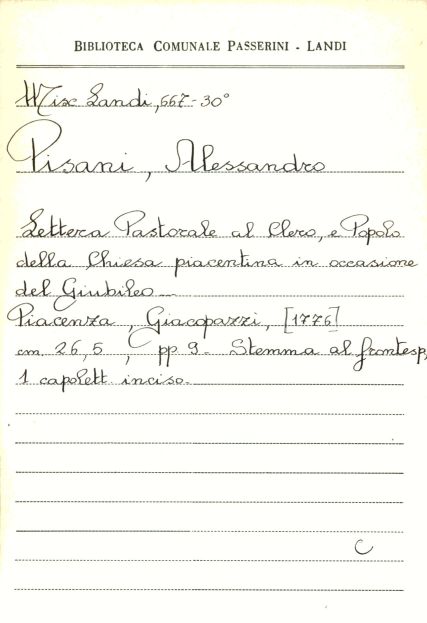 BIBLIOTECA COMUNALE PASSERINI - LANDI
Misc Landi, 667-30°
Pisani, Alessandro
Lettera Pastorale al Clero, e Popolo
della Chiesa piacentina in occasione
del Giubileo
Piacenza, Giacopazzi, [1776]
cm 26,5, pp 9. Stemma al frontesp,
1 capolett inciso.
C